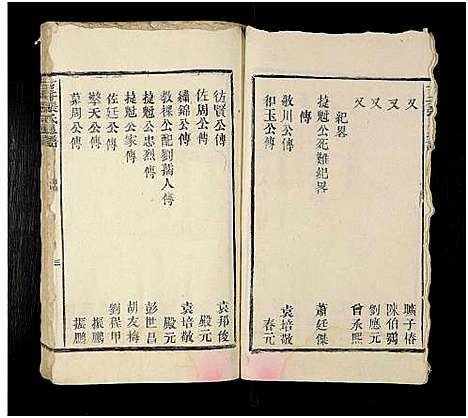 又 曠子椿
又 陳伯鷃
又 劉應元
又 曾承熙
紀畧
捷魁公死難紀畧 蕭廷傑
傳
敬川公傳 袁培敬
和玉公傳 春元
彷賢公傳 袁邦俊
佐周公傳 殿元
繡錦公傳 袁培敬
教樸公配劉孺人傳 殿元
捷魁公忠烈傳 彭世昌
捷魁公家傳 胡友梅
佐廷公傳 劉程甲
擎天公傳 振鵬
慕周公傳 振鵬